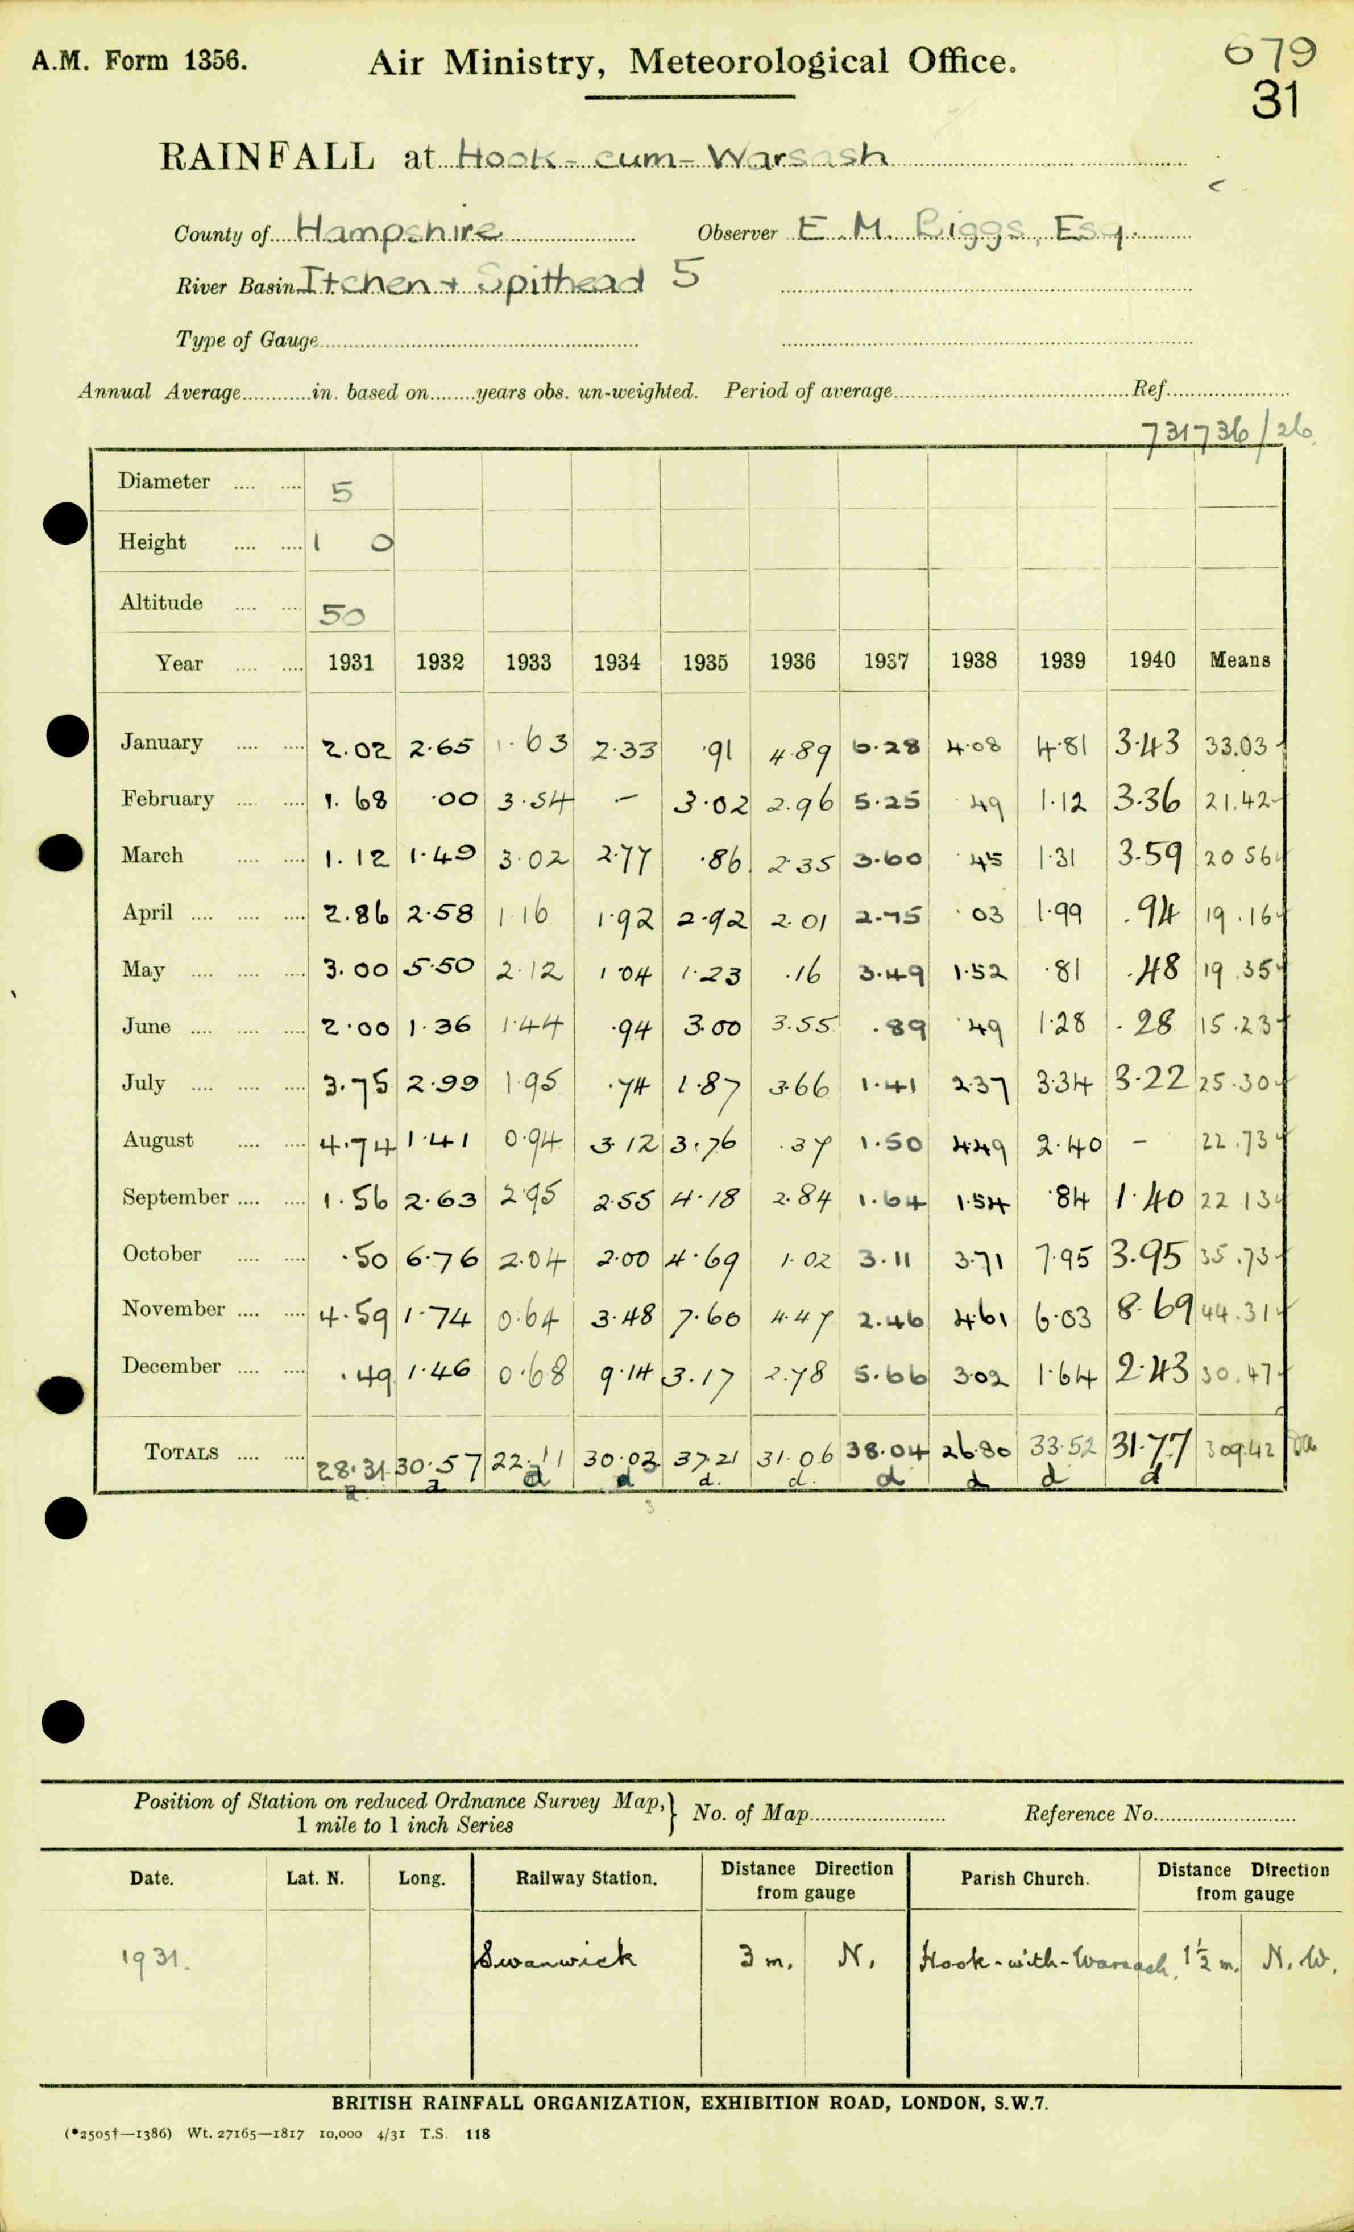 A.M. Form 1356.
Air Ministry, Meteorological Office.
679
31
RAINFALL at Hook-cum-Warsash
County of Hampshire Observer E. M. Biggs, Esq.
River Basin Itchen + Spithead 5
Type of Gauge
Annual Average in. based on years obs. un-weighted. Period of average Ref.
731736/26
Diameter 5
Height 1 0
Altitude 50
Year 1931 1932 1933 1934 1935 1936 1937 1938 1939 1940 Means
January 2.02 2.65 1.63 2.33 .91 4.89 6.28 4.08 4.81 3.43 33.03
February 1.68 .00 3.54 – 3.02 2.96 5.25 49 1.12 3.36 21.42
March 1.12 1.49 3.02 2.77 .86 2.35 3.60 .45 1.31 3.59 20 56
April 2.86 2.58 1.16 1.92 2.92 2.01 2.75 .03 1.99 .94 19.16
May 3.00 5.50 2.12 1.04 1.23 .16 3.49 1.52 .81 .48 19.35
June 2.00 1.36 1.44 .94 3.00 3.55 .89 .49 1.28 .28 15.23
July 3.75 2.99 1.95 .74 1.87 3.66 1.41 2.37 3.34 3.22 25.30
August 4.74 1.41 0.94 3.12 3.76 .37 1.50 4.49 2.40 – 22.73
September 1.56 2.63 2.95 2.55 4.18 2.84 1.64 1.54 .84 1.40 22 13
October .50 6.76 2.04 2.00 4.69 1.02 3.11 3.71 7.95 3.95 35.73
November 4.59 1.74 0.64 3.48 7.60 4.47 2.46 4.61 6.03 8.69 44.31
December .49 1.46 0.68 9.14 3.17 2.78 5.66 3.02 1.64 2.43 30.47
TOTALS 28.31 30.57 22.11 30.03 37.21 31.06 38.04 26.80 33.52 31.77 309.42
a a d d d. d. d d d d
Position of Station on reduced Ordnance Survey Map, } No. of Map Reference No.
1 mile to 1 inch Series
Date. Lat. N. Long. Railway Station. Distance Direction from gauge Parish Church. Distance Direction from gauge
1931. Swanwick 3 m. N. Hook-with-Warsash. 1½ m. N.W.
BRITISH RAINFALL ORGANIZATION, EXHIBITION ROAD, LONDON, S.W.7.
(*2505†—1386) Wt. 27165—1817 10,000 4/31 T.S. 118